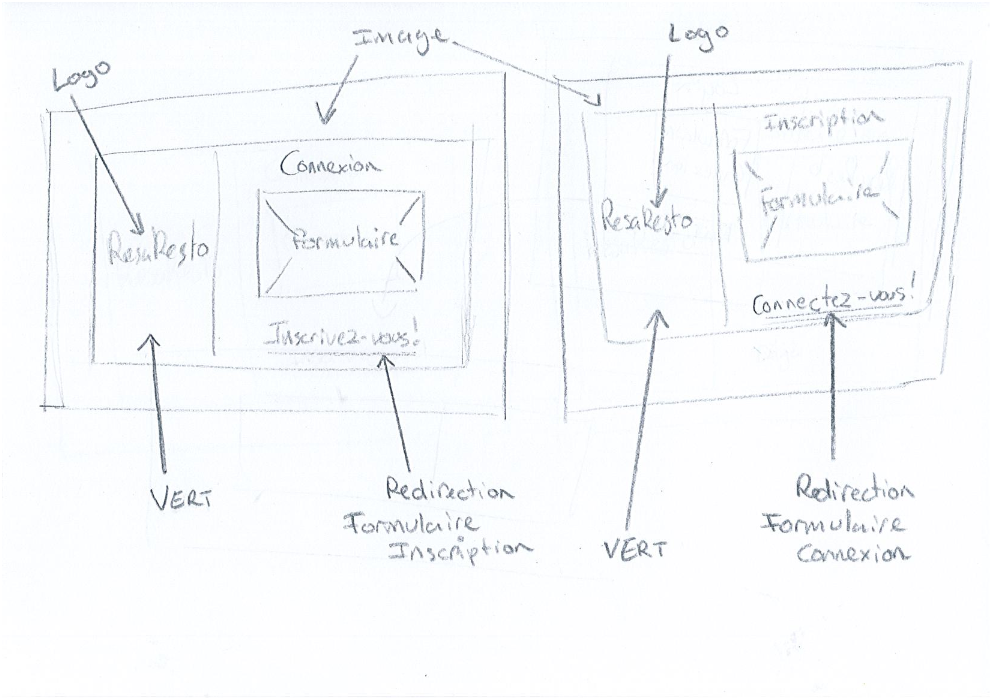 Image
Logo
Logo
Connexion
ResaResto
Formulaire
Inscrivez-vous!
VERT
Redirection
Formulaire
Inscription
Inscription
Formulaire
ResaResto
Connectez-vous!
VERT
Redirection
Formulaire
Connexion